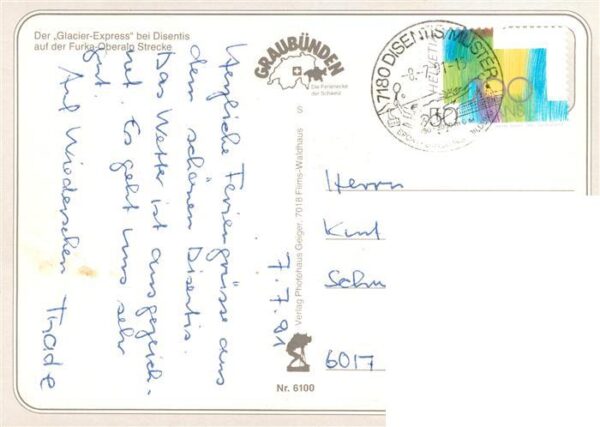 Der „Glacier-Express" bei Disentis
auf der Furka-Oberalp Strecke
7.7.91
Herzliche Feriengrüsse aus
dem schönen Disentis.
Das Wetter ist ausgezeich-
net. Es geht uns sehr
gut.
Auf Wiedersehen
GRAUBÜNDEN
Die Ferienecke
der Schweiz
S
Verlag Photohaus Geiger, 7018 Flims-Waldhaus
Nr. 6100
7180 DISENTIS/MUSTER
HELVETIA
Herrn
6017